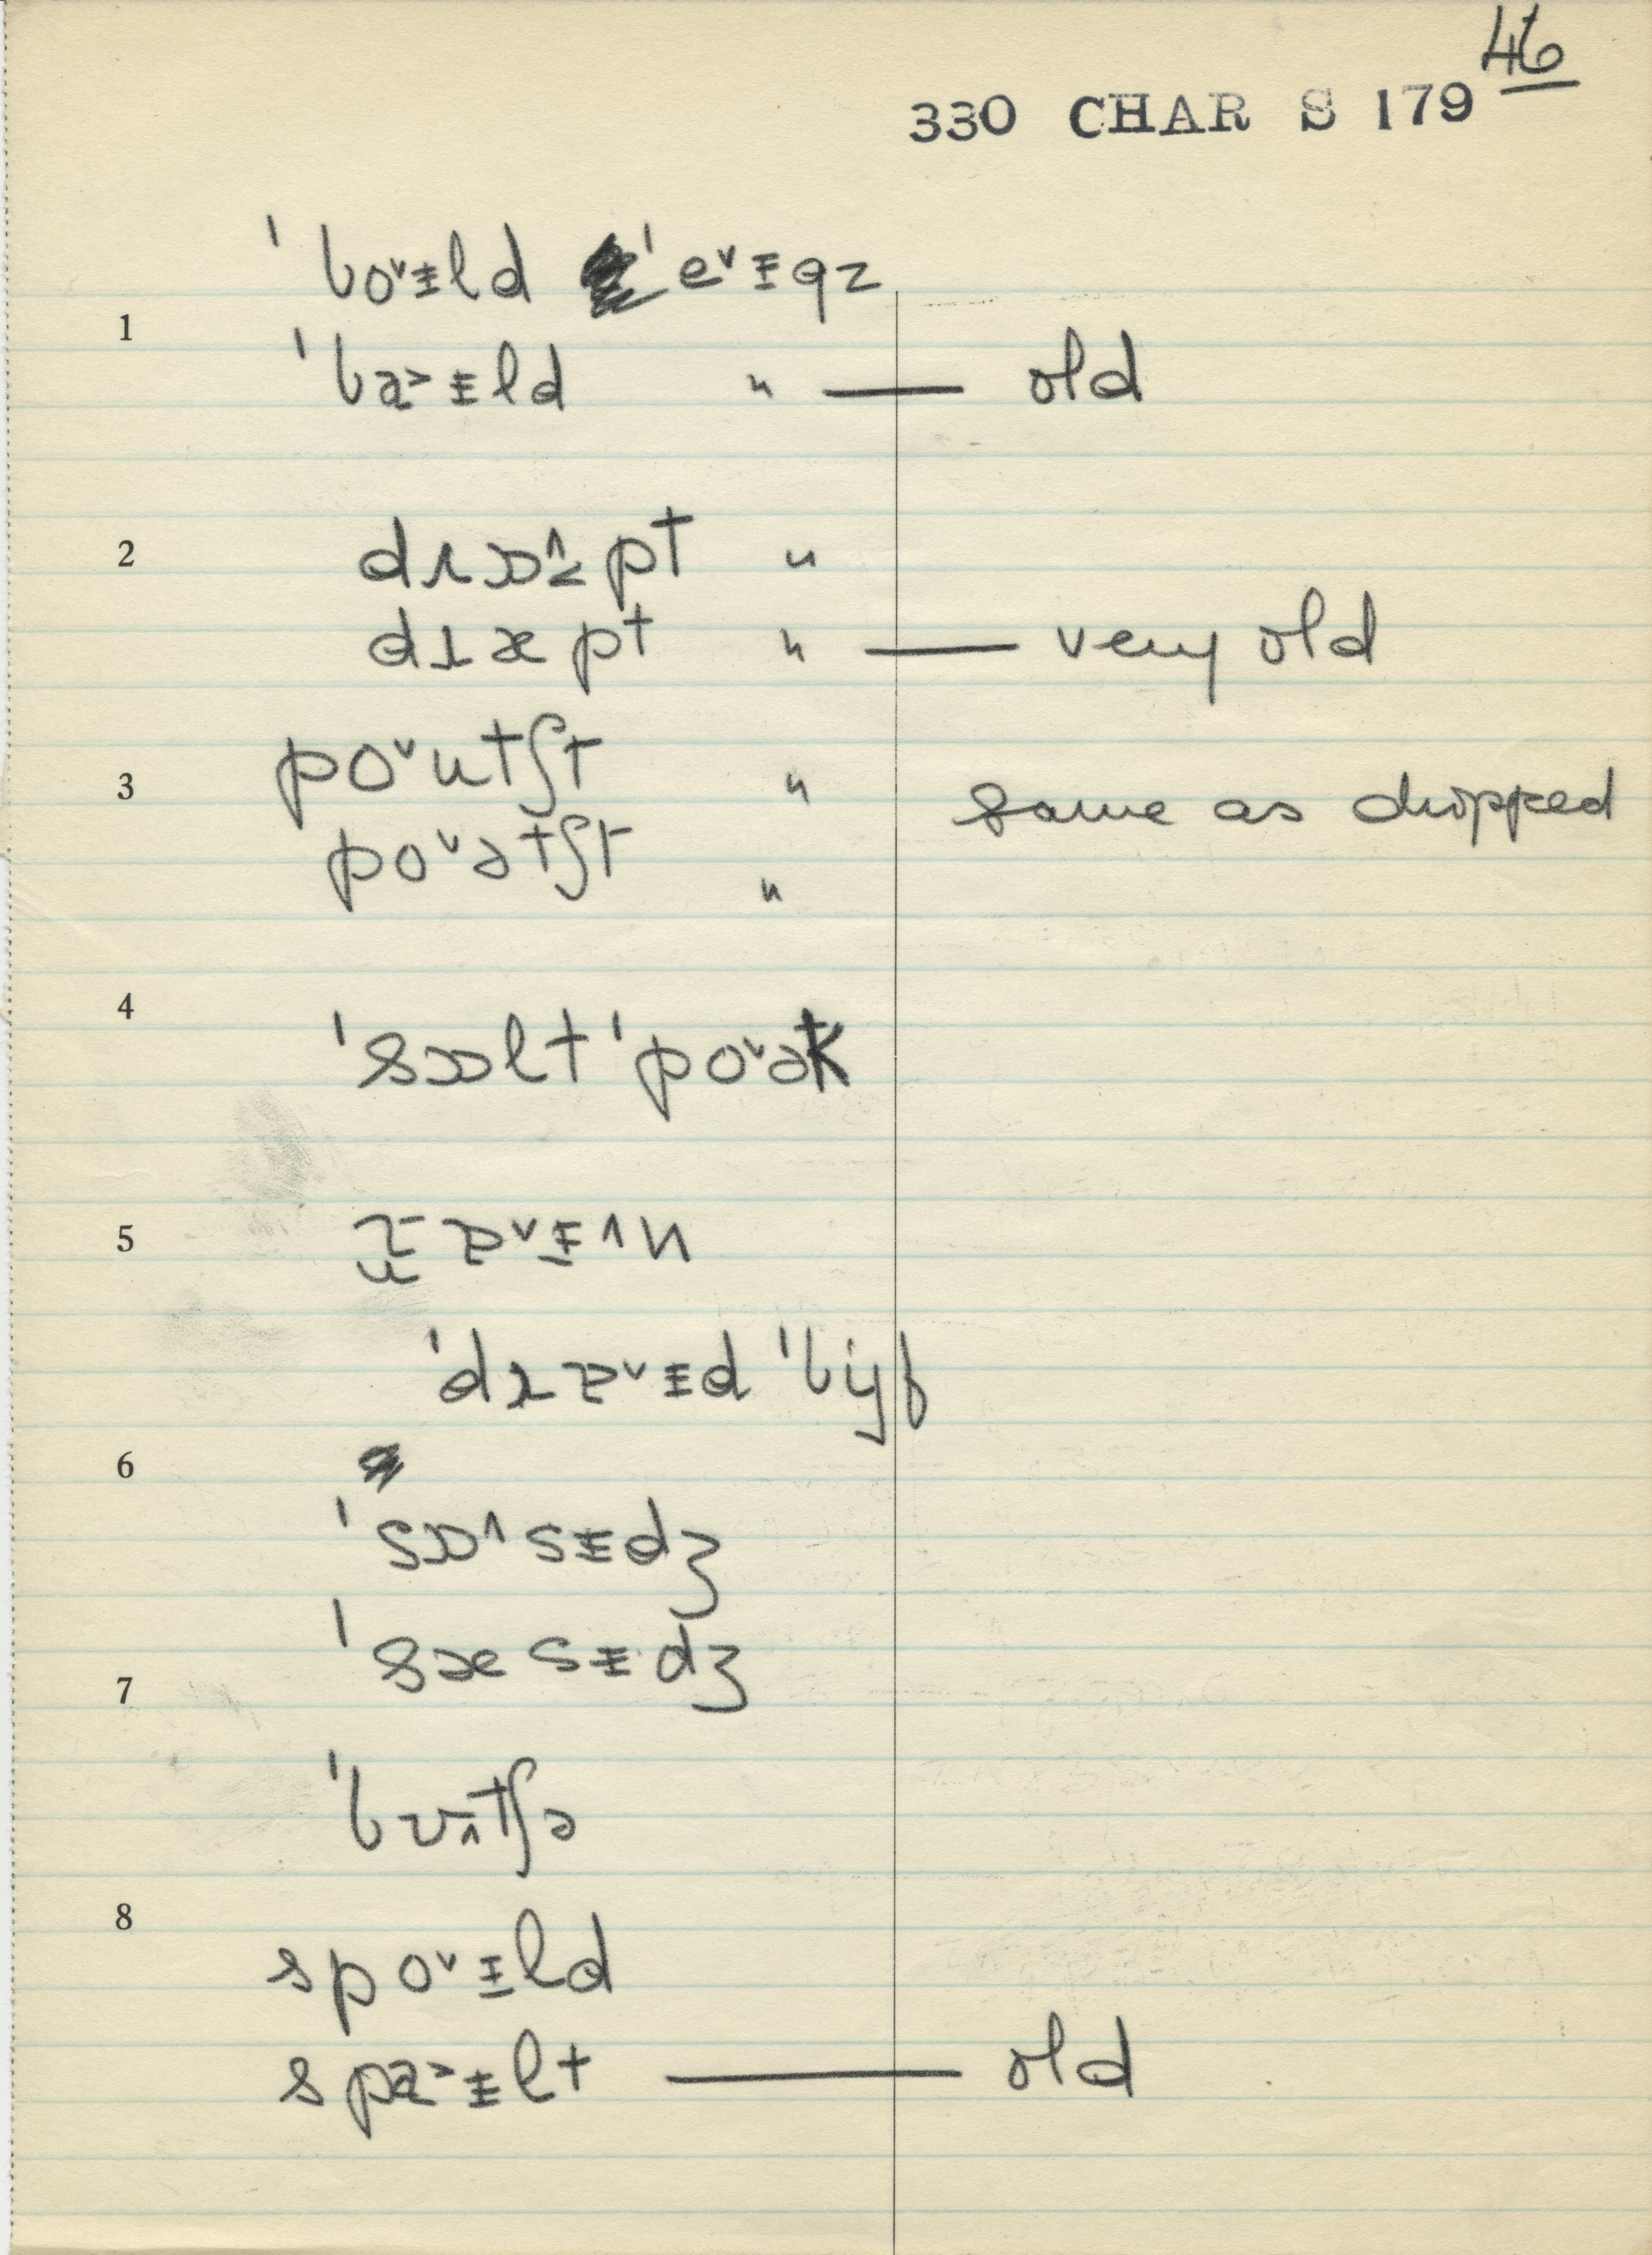 46
330 CHAR S 179
ˈbo˅ɪld ˈe˅ɪgz
1
ˈba˃ɪld " — old
2 drɒ˄˂pt "
dræpt " — very old
po˅utʃt "
3 same as dropped
po˅ətʃt "
4
ˈsɒlt ˈpo˅ək
5
ˈdrɐ˅ɪd ˈbijf
6
ˈsɒ˄sɪdʒ
ˈsæsɪdʒ
7
ˈbʊ˄tʃə
8
spo˅ɪld
spa˃ɪlt — old